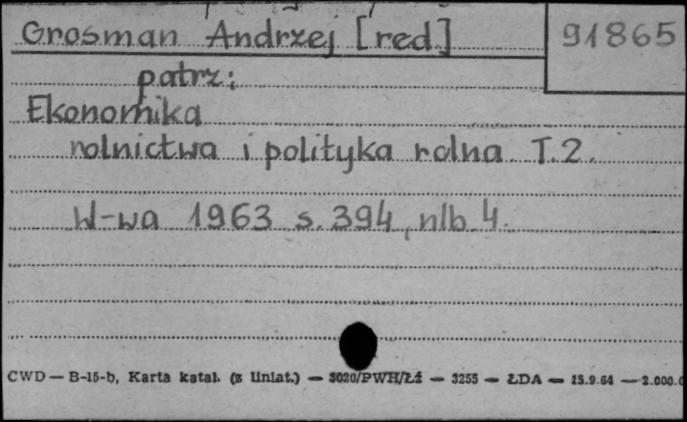 Grosman Andrzej [red]
91865
patrz:
Ekonomika
rolnictwa i polityka rolna T.2.
W-wa 1963 s. 394, nlb. 4.
CWD — B-15-b, Karta katal. (z liniat.) — 3020/PWH/Łź — 3255 — ŁDA — 15.9.64 — 2.000.0